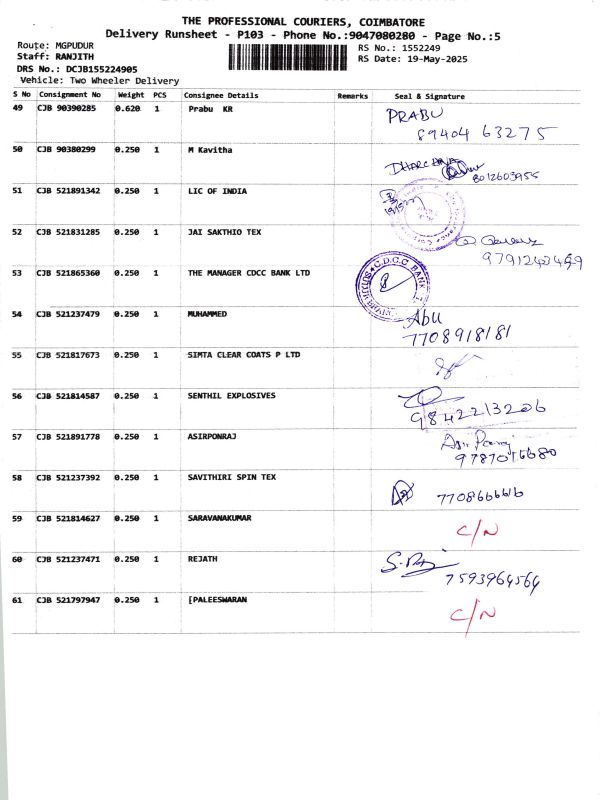 THE PROFESSIONAL COURIERS, COIMBATORE
Delivery Runsheet - P103 - Phone No.:9047080280 - Page No.:5
Route: MGPUDUR
RS No.: 1552249
Staff: RANJITH
RS Date: 19-May-2025
DRS No.: DCJB155224905
Vehicle: Two Wheeler Delivery
S No Consignment No Weight PCS Consignee Details Remarks Seal & Signature
49 CJB 90390285 0.620 1 Prabu KR PRABU
89404 63275
50 CJB 90380299 0.250 1 M Kavitha
8012603955
51 CJB 521891342 0.250 1 LIC OF INDIA
52 CJB 521831285 0.250 1 JAI SAKTHIO TEX
9791243499
53 CJB 521865360 0.250 1 THE MANAGER CDCC BANK LTD C.D.C.C. BANK
54 CJB 521237479 0.250 1 MUHAMMED Abu
7708918181
55 CJB 521817673 0.250 1 SIMTA CLEAR COATS P LTD
56 CJB 521814587 0.250 1 SENTHIL EXPLOSIVES
9842213206
57 CJB 521891778 0.250 1 ASIRPONRAJ
9787016680
58 CJB 521237392 0.250 1 SAVITHIRI SPIN TEX 7708666616
59 CJB 521814627 0.250 1 SARAVANAKUMAR C/N
60 CJB 521237471 0.250 1 REJATH
7593964564
61 CJB 521797947 0.250 1 [PALEESWARAN C/N